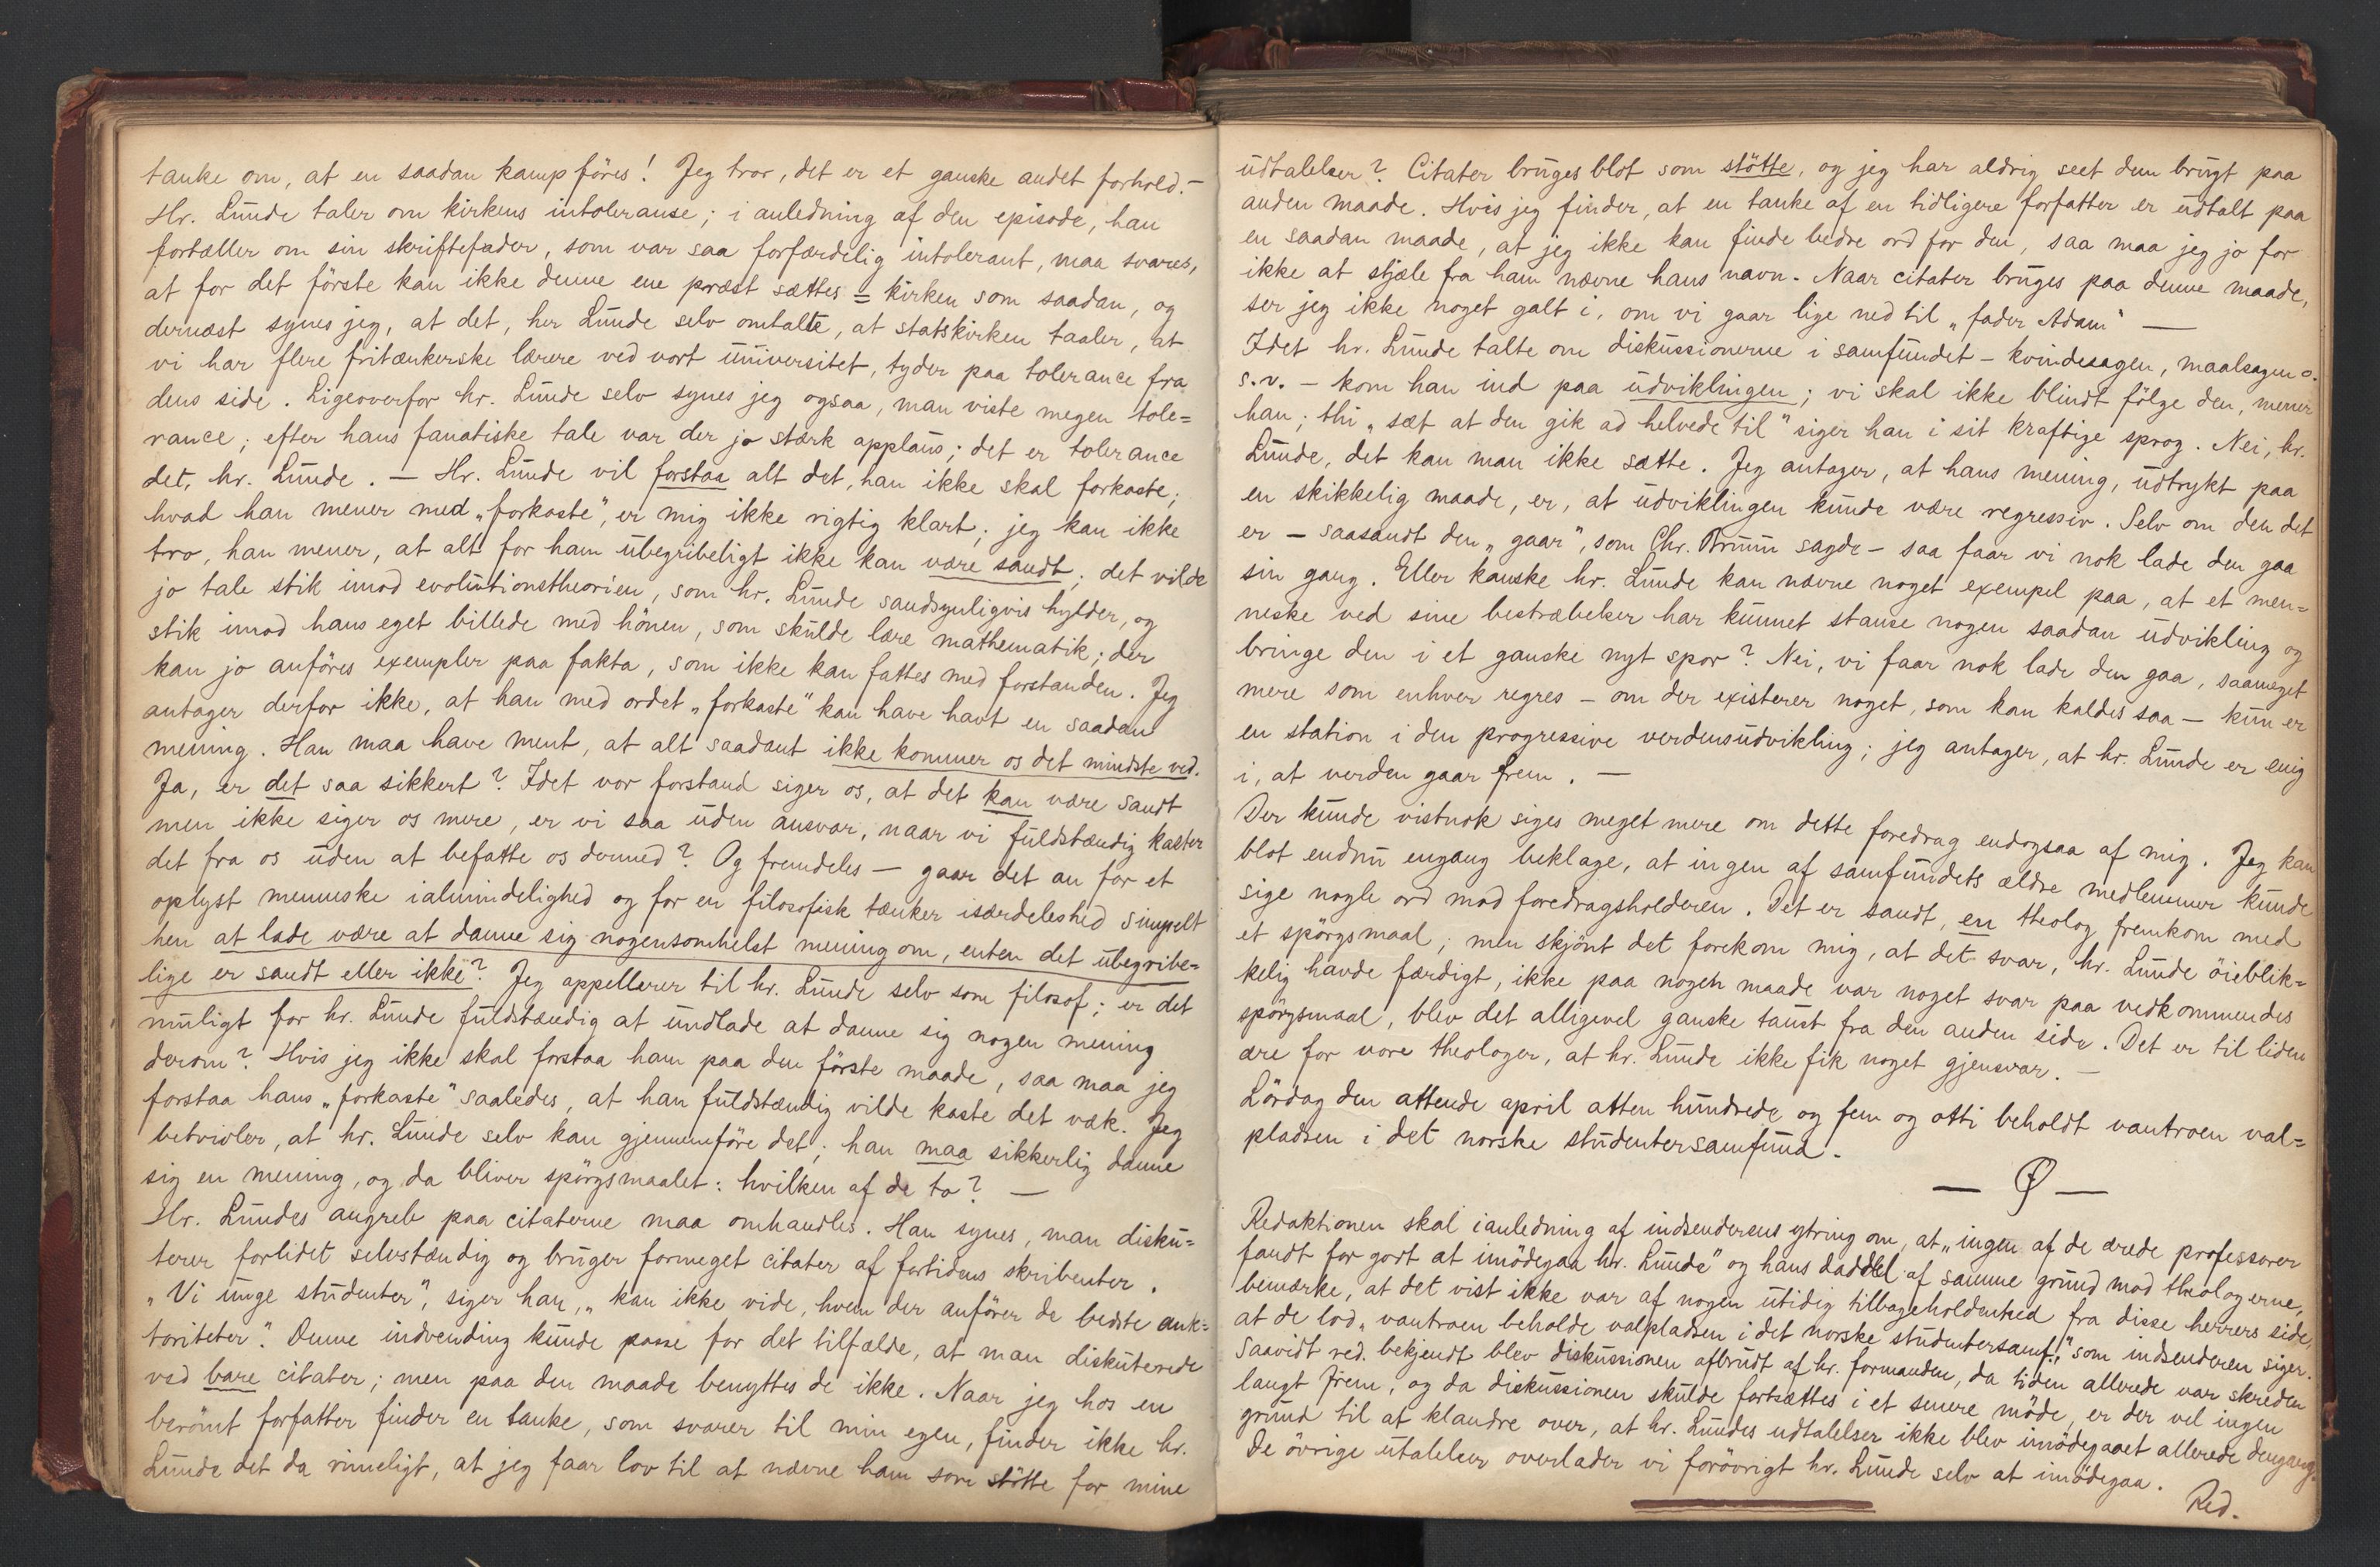 tanke om, at en saadan kamp föres! Jeg tror, det er et ganske andet forhold. —
Hr. Lunde taler om kirkens intoleranse; i anledning af den episode, han
fortæller om sin skriftefader, som var saa forfærdelig intolerant, maa svares,
at for det förste kan ikke denne ene præst sættes = kirken som saadan, og
dernæst synes jeg, at det, her Lunde selv omtalte, at statskirken taaler, at
vi har flere fritænkerske lærere ved vort universitet, tyder paa tolerance fra
dens side. Ligeoverfor hr. Lunde selv synes jeg ogsaa, man viste megen tole=
rance; efter hans fanatiske tale var der jo stærk applaus; det er tolerance
det, hr. Lunde. — Hr. Lunde vil forstaa alt det, han ikke skal forkaste;
hvad han mener med „forkaste“, er mig ikke rigtig klart; jeg kan ikke
tro, han mener, at alt for ham ubegribeligt ikke kan være sandt; det vilde
jo tale stik imod evolutionstheorien, som hr. Lunde sandsynligvis hylder, og
stik imod hans eget billede med hönen, som skulde lære mathematik; der
kan jo anföres exempler paa fakta, som ikke kan fattes med forstanden. Jeg
antager derfor ikke, at han med ordet „forkaste“ kan have havt en saadan
mening. Han maa have ment, at alt saadant ikke kommer os det mindste ved.
Ja, er det saa sikkert? Idet vor forstand siger os, at det kan være sandt
men ikke siger os mere, er vi saa uden ansvar, naar vi fuldstændig kaster
det fra os uden at befatte os dermed? Og fremdeles — gaar det an for et
oplyst menneske ialmindelighed og for en filosofisk tænker isærdeleshed simpelt
hen at lade være at danne sig nogensomhelst mening om, enten det ubegribe=
lige er sandt eller ikke? Jeg appellerer til hr. Lunde selv som filosof; er det
muligt for hr. Lunde fuldstændig at undlade at danne sig nogen mening
derom? Hvis jeg ikke skal forstaa ham paa den förste maade, saa maa jeg
forstaa hans „forkaste“ saaledes, at han fuldstændig vilde kaste det væk. Jeg
betvivler, at hr. Lunde selv kan gjennemföre det; han maa sikkerlig danne
sig en mening, og da bliver spörgsmaalet: hvilken af de to? —
Hr. Lundes angreb paa citaterne maa omhandles. Han synes, man disku=
terer forlidet selvstændig og bruger formeget citater af fortidens skribenter.
„Vi unge studenter“, siger han, „kan ikke vide, hvem der anförer de bedste auk=
toriteter“. Denne indvending kunde passe for det tilfælde, at man diskuterede
ved bare citater; men paa den maade benyttes de ikke. Naar jeg hos en
berömt forfatter finder en tanke, som svarer til min egen, finder ikke hr.
Lunde det da rimeligt, at jeg faar lov til at nævne ham som stötte for mine
udtalelser? Citater bruges blot som stötte, og jeg har aldrig seet dem brugt paa
anden maade. Hvis jeg finder, at en tanke af en tidligere forfatter er udtalt paa
en saadan maade, at jeg ikke kan finde bedre ord for den, saa maa jeg jo for
ikke at stjæle fra ham nævne hans navn. Naar citater bruges paa denne maade,
ser jeg ikke noget galt i, om vi gaar lige ned til „fader Adam“ —
Idet hr. Lunde talte om diskussionerne i samfundet — kvindesagen, maalsagen o.
s.v. — kom han ind paa udviklingen; vi skal ikke blindt fölge den, mener
han; thi „sæt at den gik ad helvede til“ siger han i sit kraftige sprog. Nei, hr.
Lunde, det kan man ikke sætte. Jeg antager, at hans mening, udtrykt paa
en skikkelig maade, er, at udviklingen kunde være regressiv. Selv om den det
er — saasandt den „gaar“, som Chr. Bruun sagde — saa faar vi nok lade den gaa
sin gang. Eller kanske hr. Lunde kan nævne noget exempel paa, at et men=
neske ved sine bestræbelser har kunnet stanse nogen saadan udvikling og
bringe den i et ganske nyt spor? Nei, vi faar nok lade den gaa, saameget
mere som enhver regres — om der existerer noget, som kan kaldes saa — kun er
en station i den progressive verdensudvikling; jeg antager, at hr. Lunde er enig
i, at verden gaar frem. —
Der kunde vistnok siges meget mere om dette foredrag endogsaa af mig. Jeg kan
blot endnu engang beklage, at ingen af samfundets ældre medlemmer kunde
sige nogle ord mod foredragsholderen. Det er sandt, en theolog fremkom med
et spörgsmaal; men skjönt det forekom mig, at det svar, hr. Lunde öieblik=
kelig havde færdigt, ikke paa nogen maade var noget svar paa vedkommendes
spörgsmaal, blev det alligevel ganske taust fra den anden side. Det er til liden
ære for vore theologer, at hr. Lunde ikke fik noget gjensvar. —
Lördag den attende april atten hundrede og fem og otti beholdt vantroen val=
pladsen i det norske studentersamfund.
— Q —
Redaktionen skal ianledning af indsenderens ytring om, at „ingen af de ærede professorer
fandt for godt at imödegaa hr. Lunde“ og hans daddel af samme grund mod theologerne,
bemærke, at det vist ikke var af nogen utidig tilbageholdenhed fra disse herrers side,
at de lod „vantroen beholde valpladsen i det norske studentersamf.“, som indsenderen siger.
Saavidt red. bekjendt blev diskussionen afbrudt af hr. formanden, da tiden allerede var skreden
langt frem, og da diskussionen skulde fortsættes i et senere möde, er der vel ingen
grund til at klandre over, at hr. Lundes udtalelser ikke blev imödegaaet allerede dengang.
De övrige utalelser overlader vi forövrigt hr. Lunde selv at imödegaa.
Red.